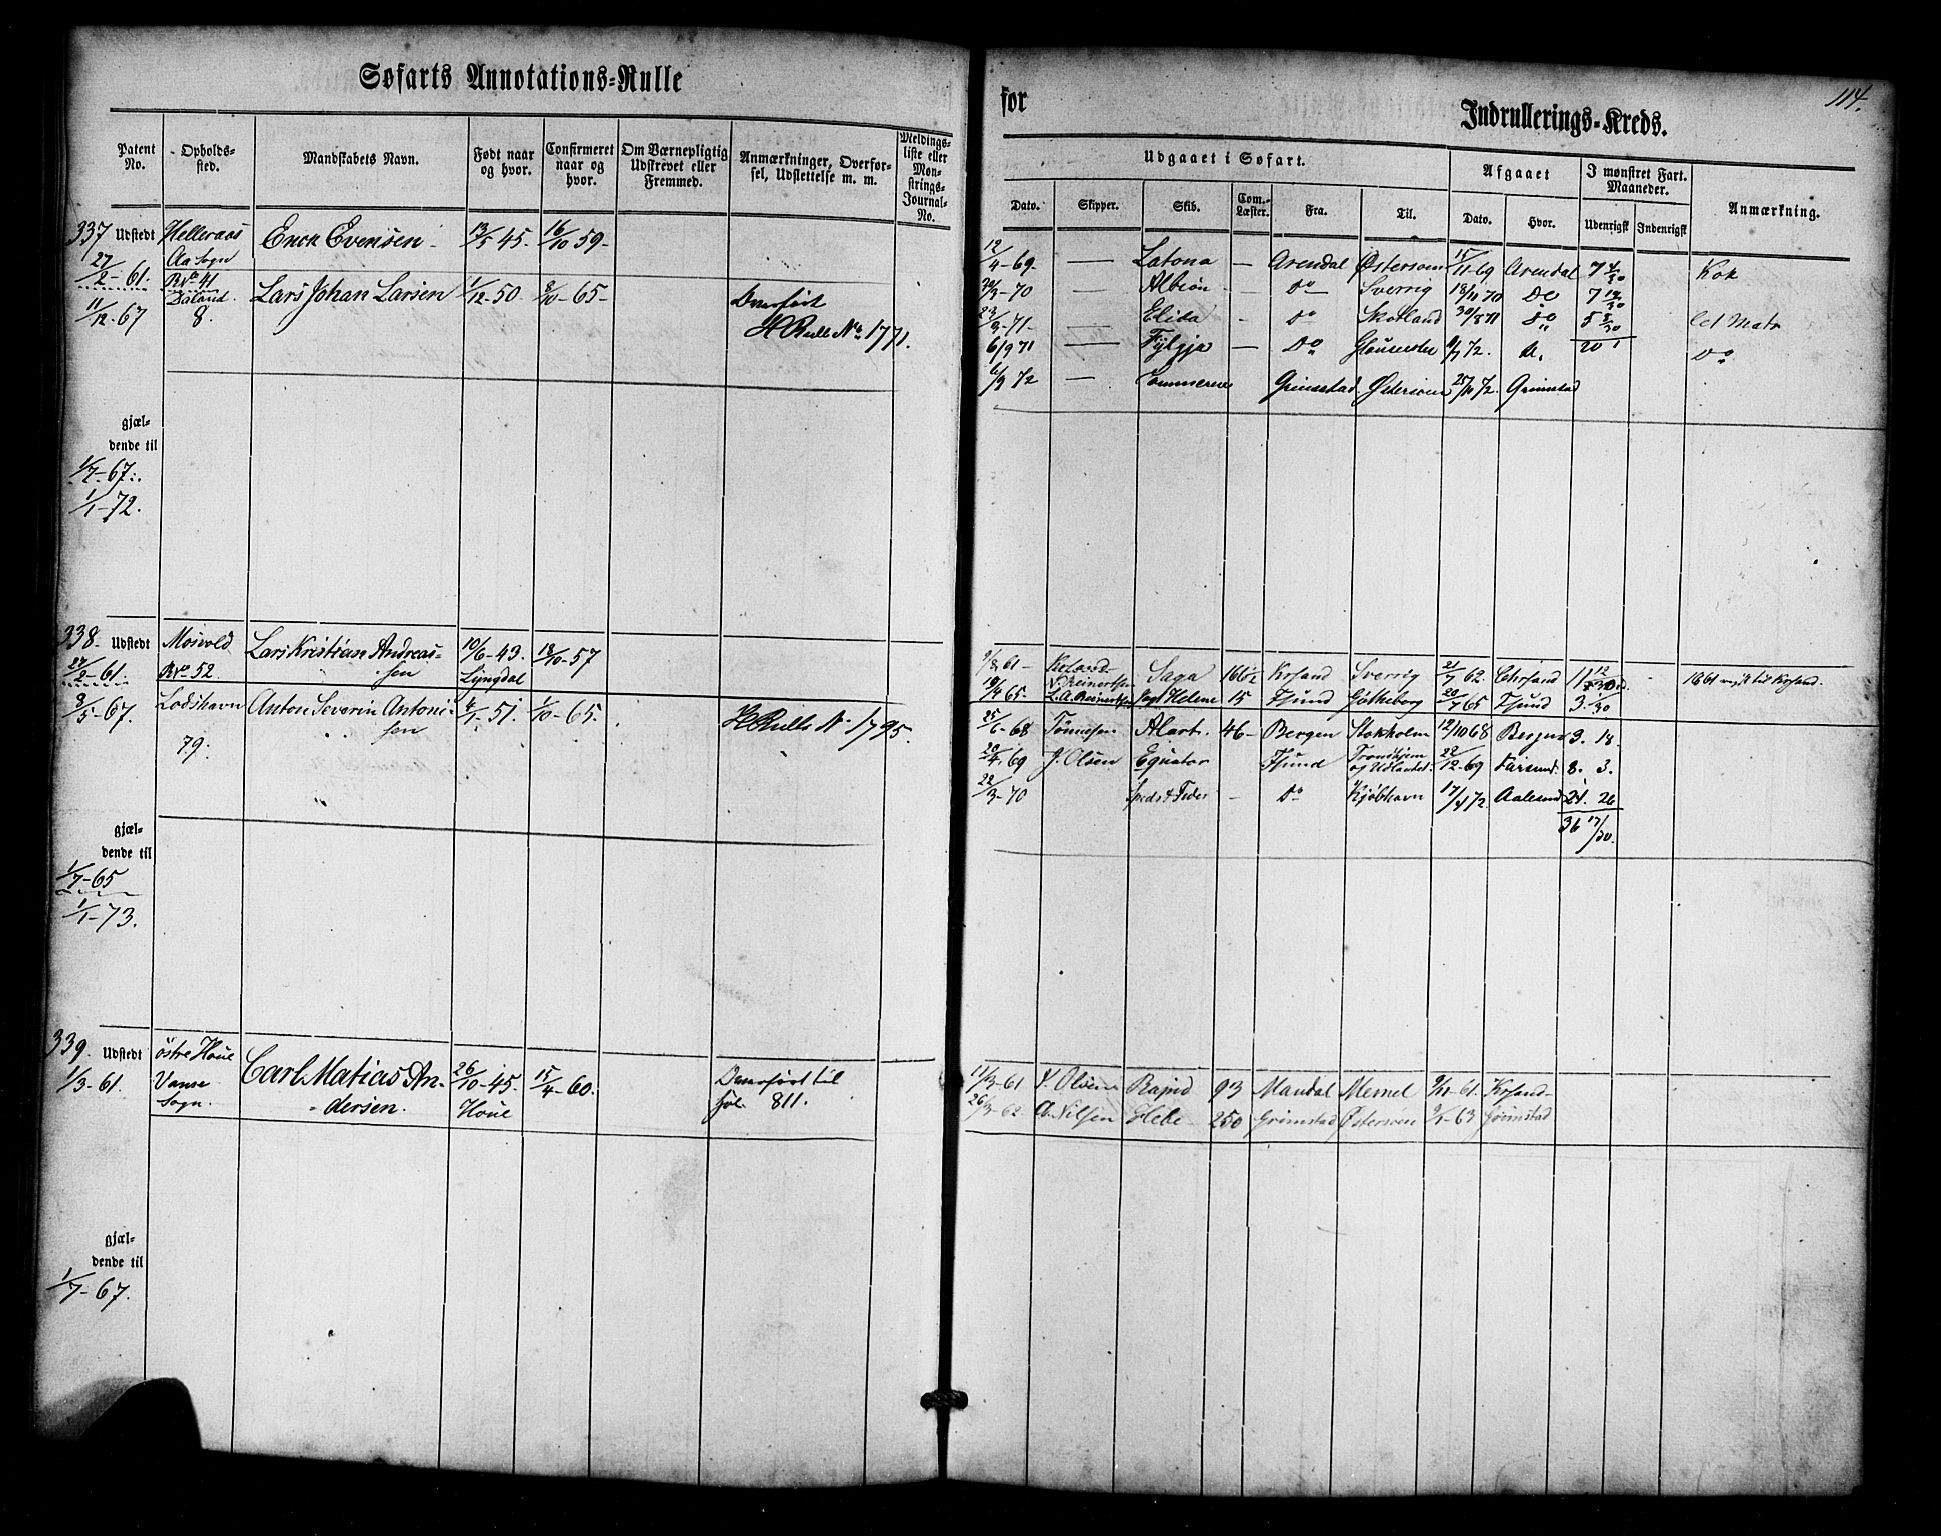 Søfarts Annotations-Rulle
Patent No.
Opholds-sted.
Mandskabets Navn.
Født naar og hvor.
Confirmeret naar og hvor.
Om Værnepligtig Udskrevet eller Fremmed.
Anmærkninger, Overfør-sel, Udslettelse m. m.
Meldings-liste eller Møn-strings-Journal-No.
337 Udstedt Helleraas Erick Evensen 13/5 45. 16/10 59.
27/2-61. Aa Sogn
Rvo 41
11/12-67 8. Lars Johan Larsen 1/12-50. 8/10-65. Overført
H Rulle No 1771.
gjæl-
dende til
1/7-67.
1/1-72.
338. Udstedt Mosvold Lars Kristian Andreas- 10/6-43. 18/10-57
27/2-61. Rvo 52. sen Lyngdal
8/5-67. Lodshavn Anton Severin Antoni- 6/1-51. 1/10-65.
79. sen H Rulle No 1795.
gjæl-
dende til
1/7-65
1/1-73.
339. Udstedt østre Houe Carl Matias An- 26/10-45. 15/4-60. Overført til
1/3-61. Vanse dersen. Houe fol. 811.
Sogn.
gjæl-
dende til
1/7-67.
for
Indrullerings-Kreds.
114.
Udgaaet i Søfart.
Afgaaet
I mønstret Fart. Maaneder.
Anmærkning.
Dato.
Skipper.
Skib.
Com. Læster.
Fra.
Til.
Dato.
Hvor.
Udenrigsk
Indenrigsk
12/4-69. — Latona — Arendal Østersøen 15/11-69 Arendal 7 4/30 Kok
-70 — Albion — Do Sverrig 18/11 70 Do 7 19/30
-71- — Elida — Do Skotland 30/8 71 Do 5 8/30 Let Matr
6/9 71 — Fylgja — Do 72. Do 20 1 Do
6/9 72 — Commerce — Grimstad Østersøen 25/11 72. Grimstad
9/8 61- Saga 166½ Krsand Sverrig 21/7 62 Chrsand 11 12
N. Reinertsen
19/4 65. L. A. Reinertsen Jagt Helene 15 Fsund Gøtheborg 20/7 65 Fsund 3. 1/30
25/6-68 Tønnesen Alart. 46- Bergen Stokholm 12/10 68 Bergen 3. 18.
20/4-69 J. Olsen Equator Fsund Trondhjem og Udlandet. 22/12-69 Farsund. 8. 3.
22/3-70 — Do Kjøbhavn 17/4 72. Aalesund 24. 26
36 17/30.
17/3-61 Olsen Rapid 93 Mandal Memel 9/11-61. Krsand
26/3-62 A. Nilsen Hebe 250 Grimstad Østersøen 9/1-63 Grimstad